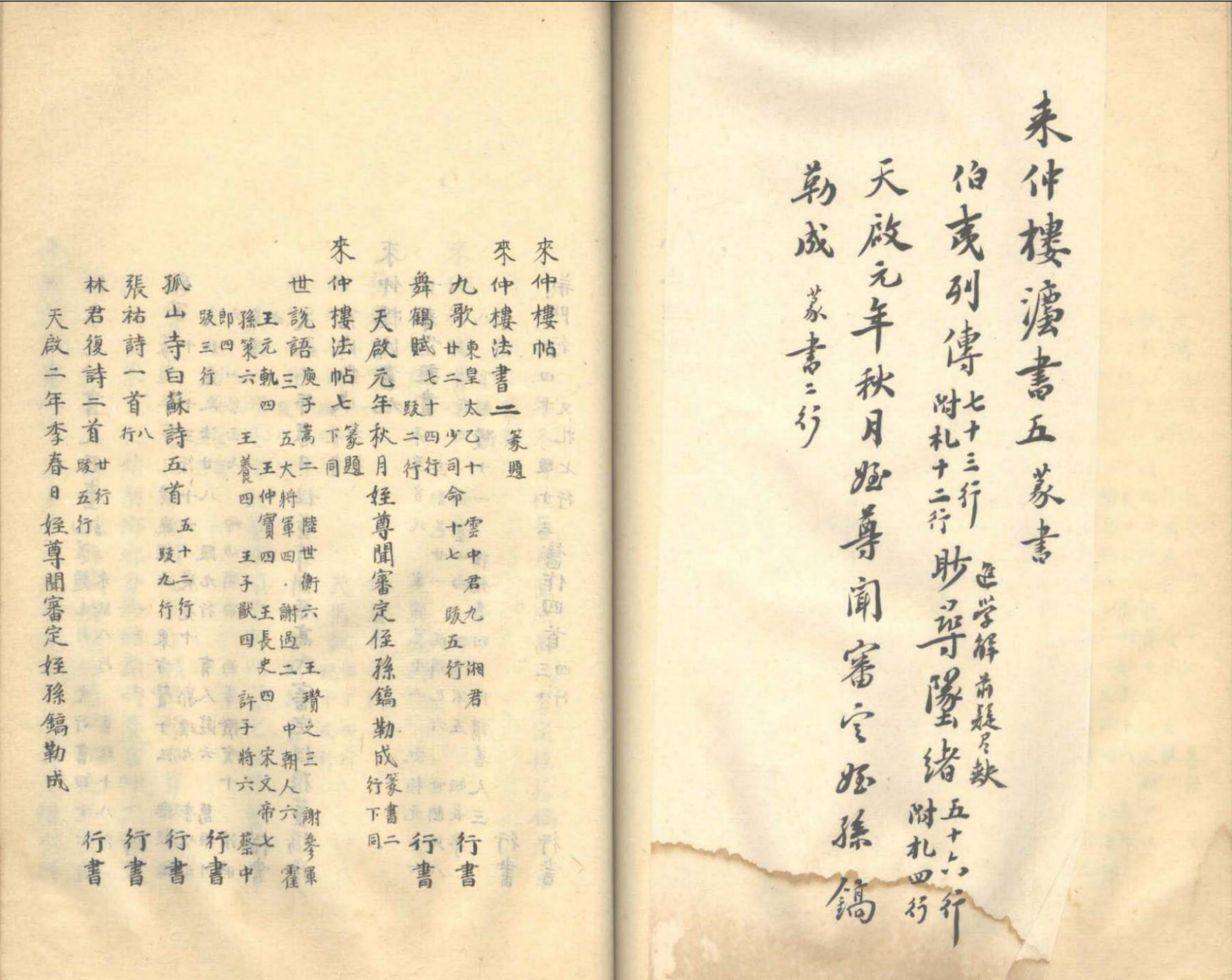 来仲樓灋書五 篆書
伯夷列傳 七十三行 附札十二行 進学解 前疑尽缺 眇尋墜緒 五十六行 附札四行
天啟元年秋月姪尊聞審定姪孫鎬
勒成 篆書二行
來仲樓帖
來仲樓法書二 篆題
九歌 東皇太乙十 雲中君九 湘君廿二 少司命十七 跋五行 行書
舞鶴賦 七十四行 跋二行 行書
天啟元年秋月姪尊聞審定侄孫鎬勒成 篆書二行下同
來仲樓法帖七 篆題下同
世説語 庾子嵩二 陸世衡六 王瓚之三 謝參軍三 五大將軍四 謝過二 中朝人六 霍
王元軌四 王仲寶四 王長史四 宋文帝七
孫策六 王養四 王子猷四 許子將六 蔡中
郎四 跋三行 行書
孤山寺白蘇詩五首 五十二行 跋九行 行書
張祐詩一首 八行 行書
林君復詩二首 廿行 跋五行 行書
天啟二年李春日姪尊聞審定姪孫鎬勒成